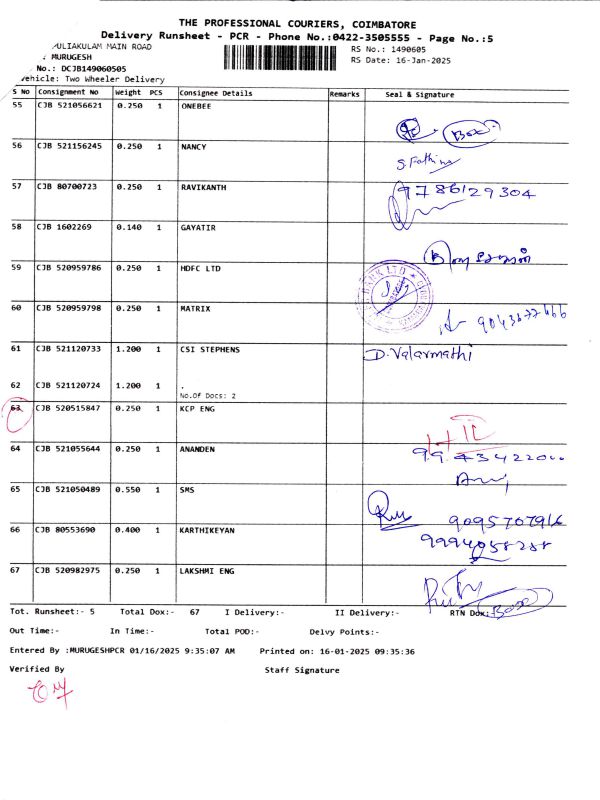 THE PROFESSIONAL COURIERS, COIMBATORE
Delivery Runsheet - PCR - Phone No.:0422-3505555 - Page No.:5
PULIAKULAM MAIN ROAD
RS No.: 1490605
: MURUGESH
RS Date: 16-Jan-2025
No.: DCJB149060505
Vehicle: Two Wheeler Delivery
S No Consignment No Weight PCS Consignee Details Remarks Seal & Signature
55 CJB 521056621 0.250 1 ONEBEE
Box
56 CJB 521156245 0.250 1 NANCY
S. Fathima
57 CJB 80700723 0.250 1 RAVIKANTH
9786129304
58 CJB 1602269 0.140 1 GAYATIR
59 CJB 520959786 0.250 1 HDFC LTD
BANK LTD
60 CJB 520959798 0.250 1 MATRIX
61 CJB 521120733 1.200 1 CSI STEPHENS
D. Valarmathi
62 CJB 521120724 1.200 1 .
No.Of Docs: 2
63 CJB 520515847 0.250 1 KCP ENG
64 CJB 521055644 0.250 1 ANANDEN
65 CJB 521050489 0.550 1 SMS
9095707916
66 CJB 80553690 0.400 1 KARTHIKEYAN
9994058288
67 CJB 520982975 0.250 1 LAKSHMI ENG
Box
Tot. Runsheet:- 5 Total Dox:- 67 I Delivery:- II Delivery:- RTN Dox:-
Out Time:- In Time:- Total POD:- Delvy Points:-
Entered By :MURUGESHPCR 01/16/2025 9:35:07 AM Printed on: 16-01-2025 09:35:36
Verified By Staff Signature